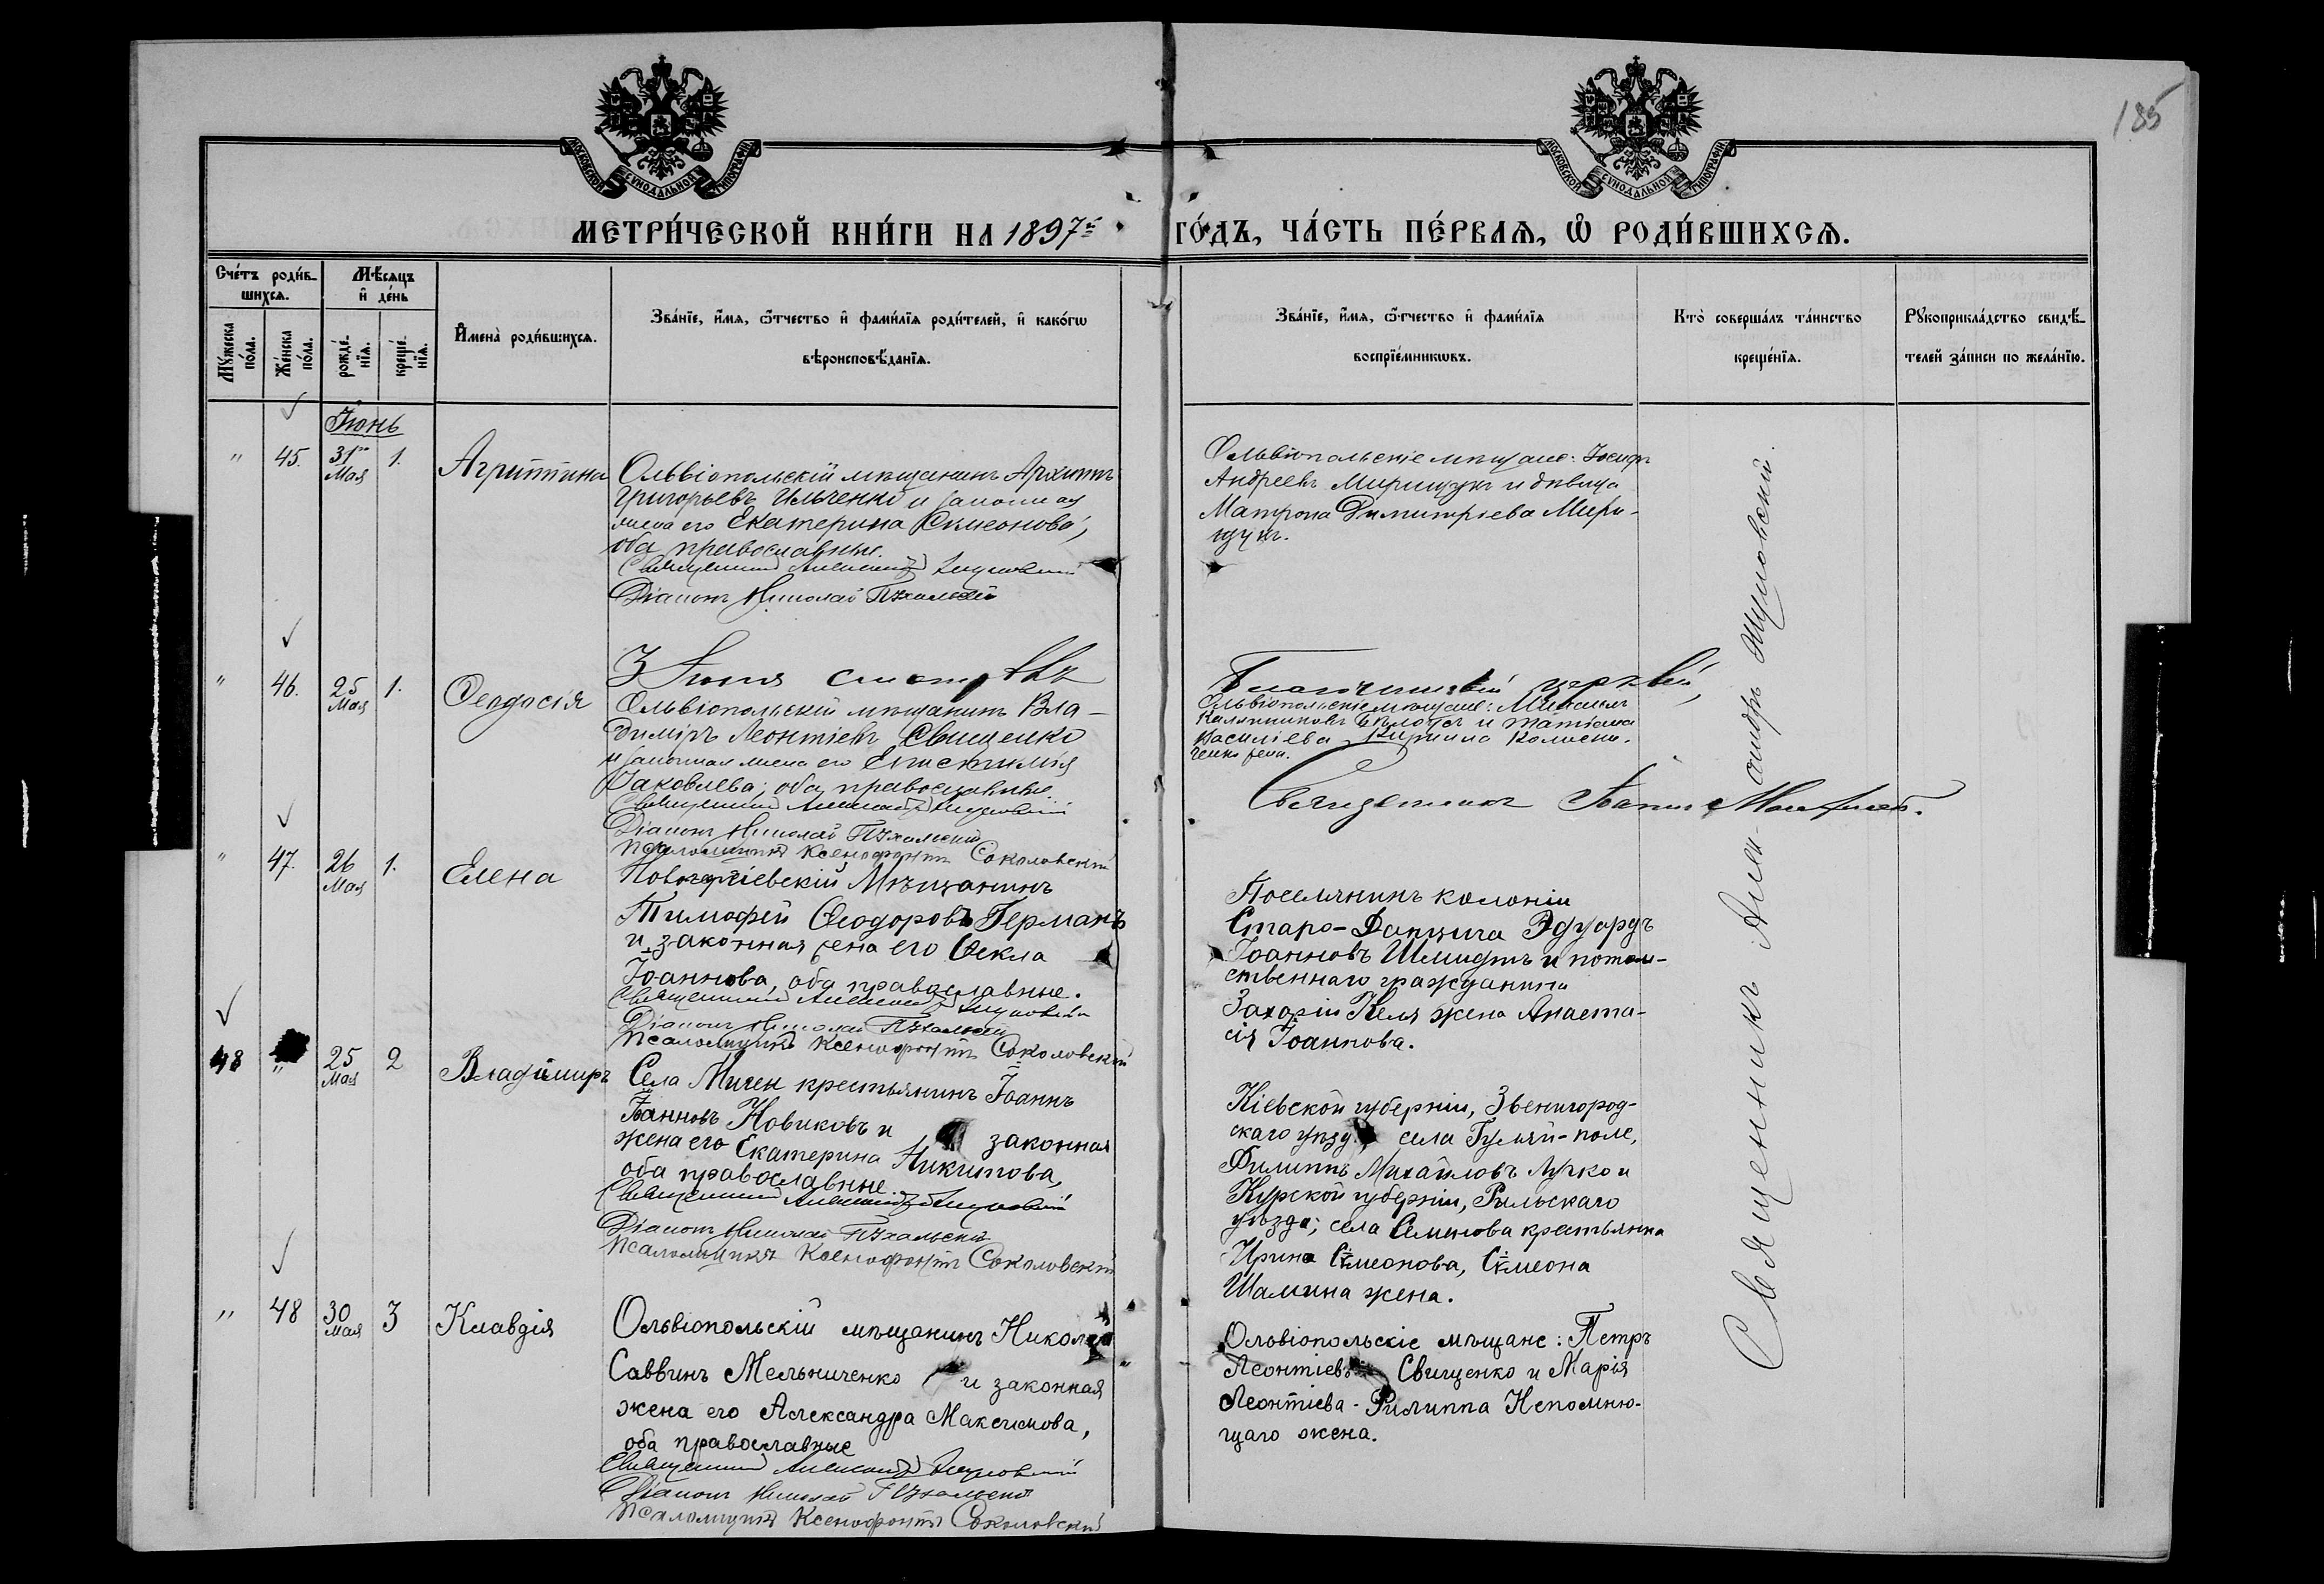 185
МОСКОВСКОЙ СУНОДАЛЬНОЙ ТИПОГРАФІИ
МОСКОВСКОЙ СУНОДАЛЬНОЙ ТИПОГРАФІИ
МЕТРИ́ЧЕСКОЙ КНИ́ГИ НА 1897й ГО́ДЪ, ЧА́СТЬ ПЕ́РВАѦ, Ѡ҆ РОДИ́ВШИХСѦ.
Сче́тъ роди́в-
шихсѧ.
Мꙋ́жеска
по́ла.
Же́нска
по́ла.
Мѣ́сѧцъ
и҆ де́нь
рожде́-
нїѧ.
креще́-
нїѧ.
И҆мена̀ роди́вшихсѧ.
Зва́нїе, и҆́мѧ, ѻ҆́тчество и҆ фами́лїѧ роди́телей, и҆ како́гѡ
вѣроисповѣ́данїѧ.
Зва́нїе, и҆́мѧ, ѻ҆́тчество и҆ фами́лїѧ
воспрїе́мникѡвъ.
Кто̀ соверша́лъ та́инство
креще́нїѧ.
Рꙋкоприкла́дство свидѣ́-
телей за́писи по жела́нїю.
Іюнь
" 45. 31го Мая 1. Агриппина
Ольвіопольскій мѣщанинъ Архиппъ
Григорьевъ Ильченко и законная
жена его Екатерина Симеонова,
оба православные.
Священникъ Александръ Шумовскій
Діаконъ Николай Пухальскій
Ольвіопольскіе мѣщане: Іосифъ
Андреевъ Мирищукъ и дѣвица
Матрона Димитріева Мири-
щукъ.
3 Іюня смотрѣлъ
Благочинный церквей,
Священникъ Іоаннъ
" 46. 25 Мая 1. Ѳеодосія
Ольвіопольскій мѣщанинъ Вла-
диміръ Леонтіевъ Свищенко
и законная жена его Епистимія
Іаковлева; оба православные.
Священникъ Александръ Шумовскій
Діаконъ Николай Пухальскій
Псаломщикъ Ксенофонтъ Соколовскій
Ольвіопольскіе мѣщане: Михаилъ
Каллиниковъ и Татіана
Васильева Кирилла
жена.
" 47. 26 Мая 1. Елена
Новогеоргіевскій Мѣщанинъ
Тимофей Ѳеодоровъ Германъ
и законная жена его Ѳекла
Іоаннова, оба православные.
Священникъ Александръ Шумовскій
Діаконъ Николай Пухальскій
Псаломщикъ Ксенофонтъ Соколовскій
Поселянинъ колоніи
Старо-Данцига Эдуардъ
Іоанновъ Шмидтъ и потом-
ственнаго гражданина
Захарія Келя жена Анаста-
сія Іоаннова.
48 " 25 Мая 2 Владиміръ
Села Мигеи крестьянинъ Іоаннъ
Іоанновъ Новиковъ и законная
жена его Екатерина Никитова,
оба православные.
Священникъ Александръ Шумовскій
Діаконъ Николай Пухальскій
Псаломщикъ Ксенофонтъ Соколовскій
Кіевской губерніи, Звенигород-
скаго уѣзда села Гуляй-поле,
Филиппъ Михайловъ Лучко и
Курской губерніи, Рыльскаго
уѣзда; села Семенова крестьянка
Ирина Сѵмеонова, Сѵмеона
Шалина жена.
" 48 30 Мая 3 Клавдія
Ольвіопольскій мѣщанинъ Николай
Саввинъ Мельниченко и законная
жена его Александра Максимова,
оба православные
Священникъ Александръ Шумовскій
Діаконъ Николай Пухальскій
Псаломщикъ Ксенофонтъ Соколовскій
Ольвіопольскіе мѣщане: Петръ
Леонтіевъ Свищенко и Марія
Леонтіева - Филиппа Непомню-
щаго жена.
Священникъ Александръ Шумовскій.